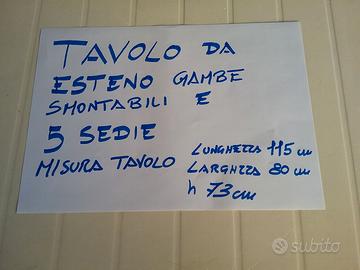 TAVOLO DA
ESTENO GAMBE
SMONTABILI E
5 SEDIE
MISURA TAVOLO
LUNGHEZZA 115 cm
LARGHZZA 80 cm
h 73 cm
subito